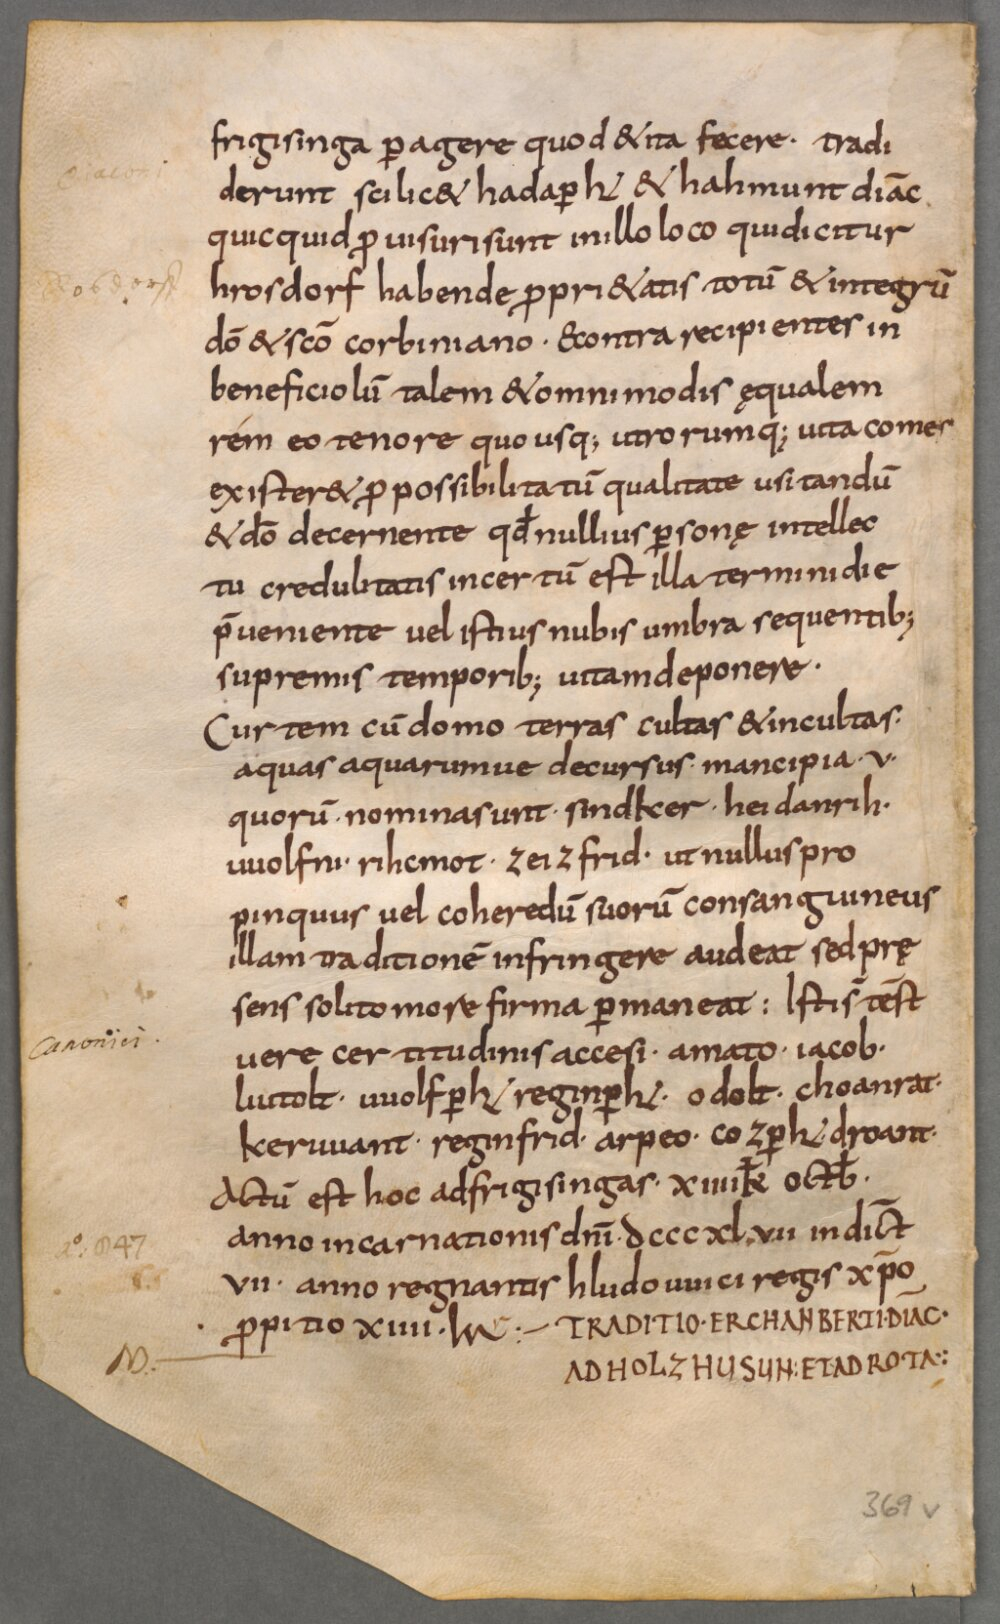 frigisinga ꝑagere quod &ita fecere· tradi
diaconi
derunt scilic& hadaꝑh &hahmunt diāc
quicquid ꝓuisurisunt inilloloco quidicitur
Rosdorff
hrosdorf habendę ꝓpri&atis totū &integrū
dō &scō corbiniano· &contra recipientes in
beneficiolū talem &omnimodis ęqualem
rem eo tenore quousq; utrorumq; uita comes
exister& ꝓpossibilitatū qualitate usitandū
&dō decernente qđ nullius ꝑsonę intellec
tu credulitatis incertū est illa terminidie
p̄ueniente uel istius nubis umbra sequentib;
supremis temporib; uitamdeponere·
Curtem cū domo terras cultas &incultas·
aquas aquarumue decursus· mancipia·v·
quorū· nominasunt· sindker· heidanrih·
uuolfni· rihcmot· zeizfrid· ut nullus pro
pinquus uel coheredū suorū consanguineus
illam traditionē infringere audeat sed prę
sens solito more firma ꝑmaneat: Istis̄ tēst
Canonici·
uere certitudinis accesi· amato· iacob·
liutolt· uuolfꝑh reginꝑh· odolt· choanrat·
keruuant· reginfrid· arpeo· cozꝑh· droant·
Actū est hoc adfrigisingas· xiiiik̄ octb̄·
aº: 847
anno incarnationis dnī· dcccxl,vii indict̄
vii· anno regnantis hludouuici regis xp̄o
ꝓpitio xiiii· TRADITIO·ERCHANBERTI·DIĀC·
N.
ADHOLZHUSUN:ETADROTA·:
369 v